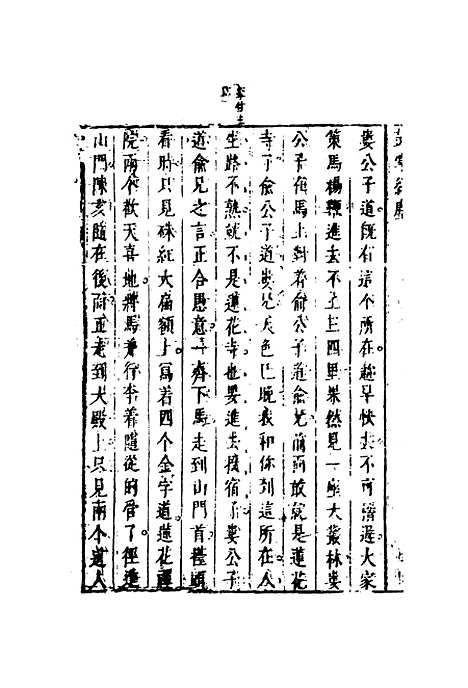 婁公子道既有這个所在趂早快去不可濟遲大家
策馬楊鞭進去不上三四里果然見一座大叢林婁
公子在馬上對着俞公子道俞兄前面敢就是蓮花
寺了俞公子道婁兄天色已晚我和你到這所在人
生路不熟就不是蓮花寺也要進去投宿了婁公子
道俞兄之言正合愚意一齊下馬走到山門首擡頭
看時只見硃紅大匾額上寫着四个金字道蓮花禪
院兩个歡天喜地將馬並行李着隨從的管了徑進
山門陳亥隨在後面正走到大殿上只見兩个道人